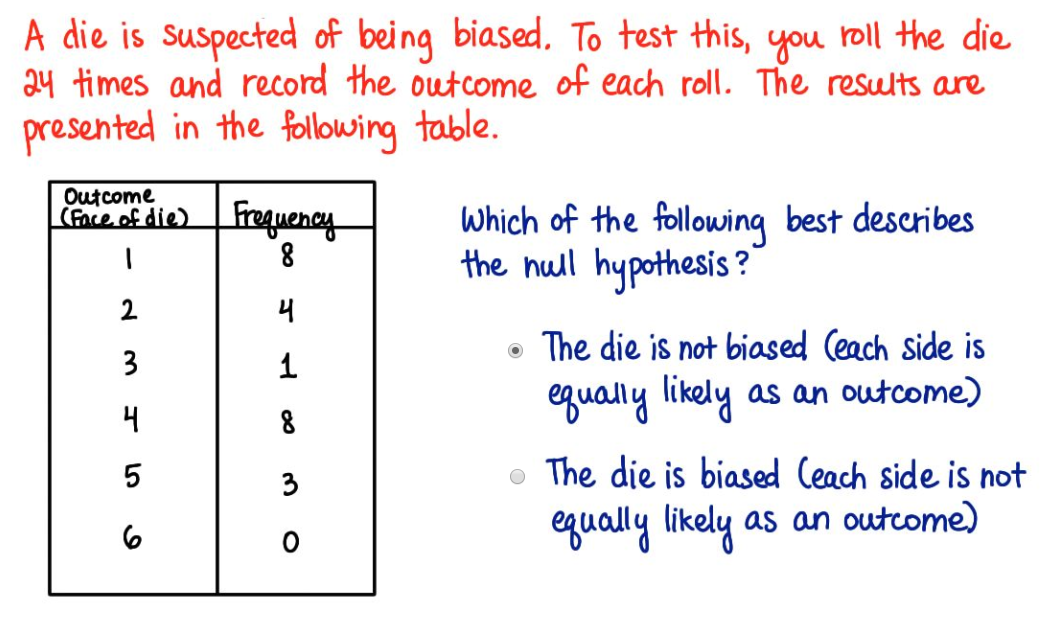 A die is suspected of being biased. To test this, you roll the die
24 times and record the outcome of each roll. The results are
presented in the following table.
Outcome
(Face of die) Frequency
1 8
2 4
3 1
4 8
5 3
6 0
Which of the following best describes
the null hypothesis?
The die is not biased (each side is
equally likely as an outcome)
The die is biased (each side is not
equally likely as an outcome)